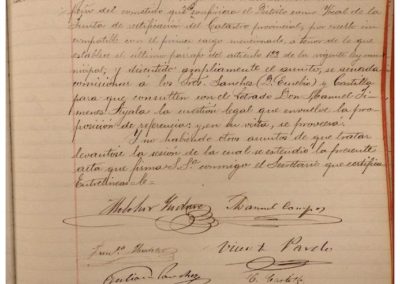 pción del cometido que le confiriera el Distrito como Vocal de la
Junta de rectificación del Catastro provincial, por cuello in-
compatible con el primer cargo mencionado, a tenor de lo que
establece el último párrafo del artículo 193 de la vigente ley muni-
cipal; y discutido ampliamente el asunto, se acuerda
comisionar a los Sres Sanchez (D. Eusebio) y Castilla
para que consulten con el Letrado Don Manuel Ji-
menez Ayala la cuestión legal que envuelve la pro-
posición de referencia y en su vista, se proveerá.
Y no habiendo otros asuntos de que tratar
levantose la sesion de la cual se extendió la presente
acta que firma S. Sª conmigo el Secretario que certifico
Entrelineas
Melchor
Manuel Campos
Vicente Pardo
Sanchez